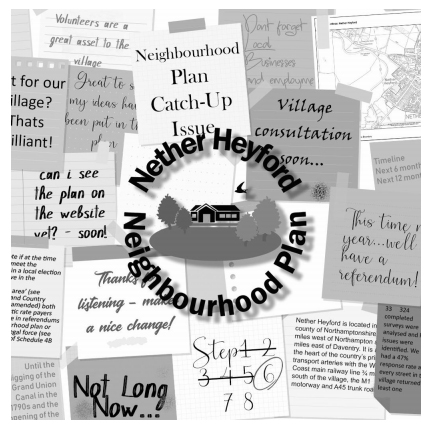 Volunteers are a
great asset to the
village
Neighbourhood
Plan
Catch-Up
Issue
Dont forget
Local
Businesses
and employme
Nether Heyford
t for our
illage?
Thats
illiant!
Great to s
my ideas ha
been put in t
plan
Village
consultation
soon...
Timeline
Next 6 month
Next 12 mon
can i see
the plan on
the website
yet? - soon!
Nether Heyford
Neighbourhood Plan
This time n
year...well
have a
referendum!
te if at the time
meet the
in a local election
e in the
area' (see
and Country
amended) both
tic rate payers
e in referendums
rhood plan or
gal force (see
of Schedule 4B
Thanks
listening - make
a nice change!
Step 1 2
3 4 5 6
7 8
Nether Heyford is located in
county of Northamptonshire
miles west of Northampton a
miles east of Daventry. It is
the heart of the country's pri
transport arteries with the
Coast main railway line ¾ m
south of the village, the M1
motorway and A45 trunk roa
33 324
completed
surveys were
analysed and
issues were
identified. We
had a 47%
response rate a
every street in
village returned
least one
Until the
digging of the
Grand Union
Canal in the
1790s and the
opening of the
Not Long
Now...